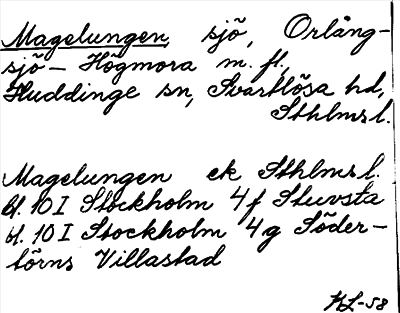 Magelungen, sjö, Orlång-
sjö – Högmora m. fl.,
Huddinge sn, Svartlösa hd,
Sthlms l.
Magelungen ek Sthlms l.
bl. 10 I Stockholm 4f Stuvsta
bl. 10 I Stockholm 4g Söder-
törns Villastad
KL-58